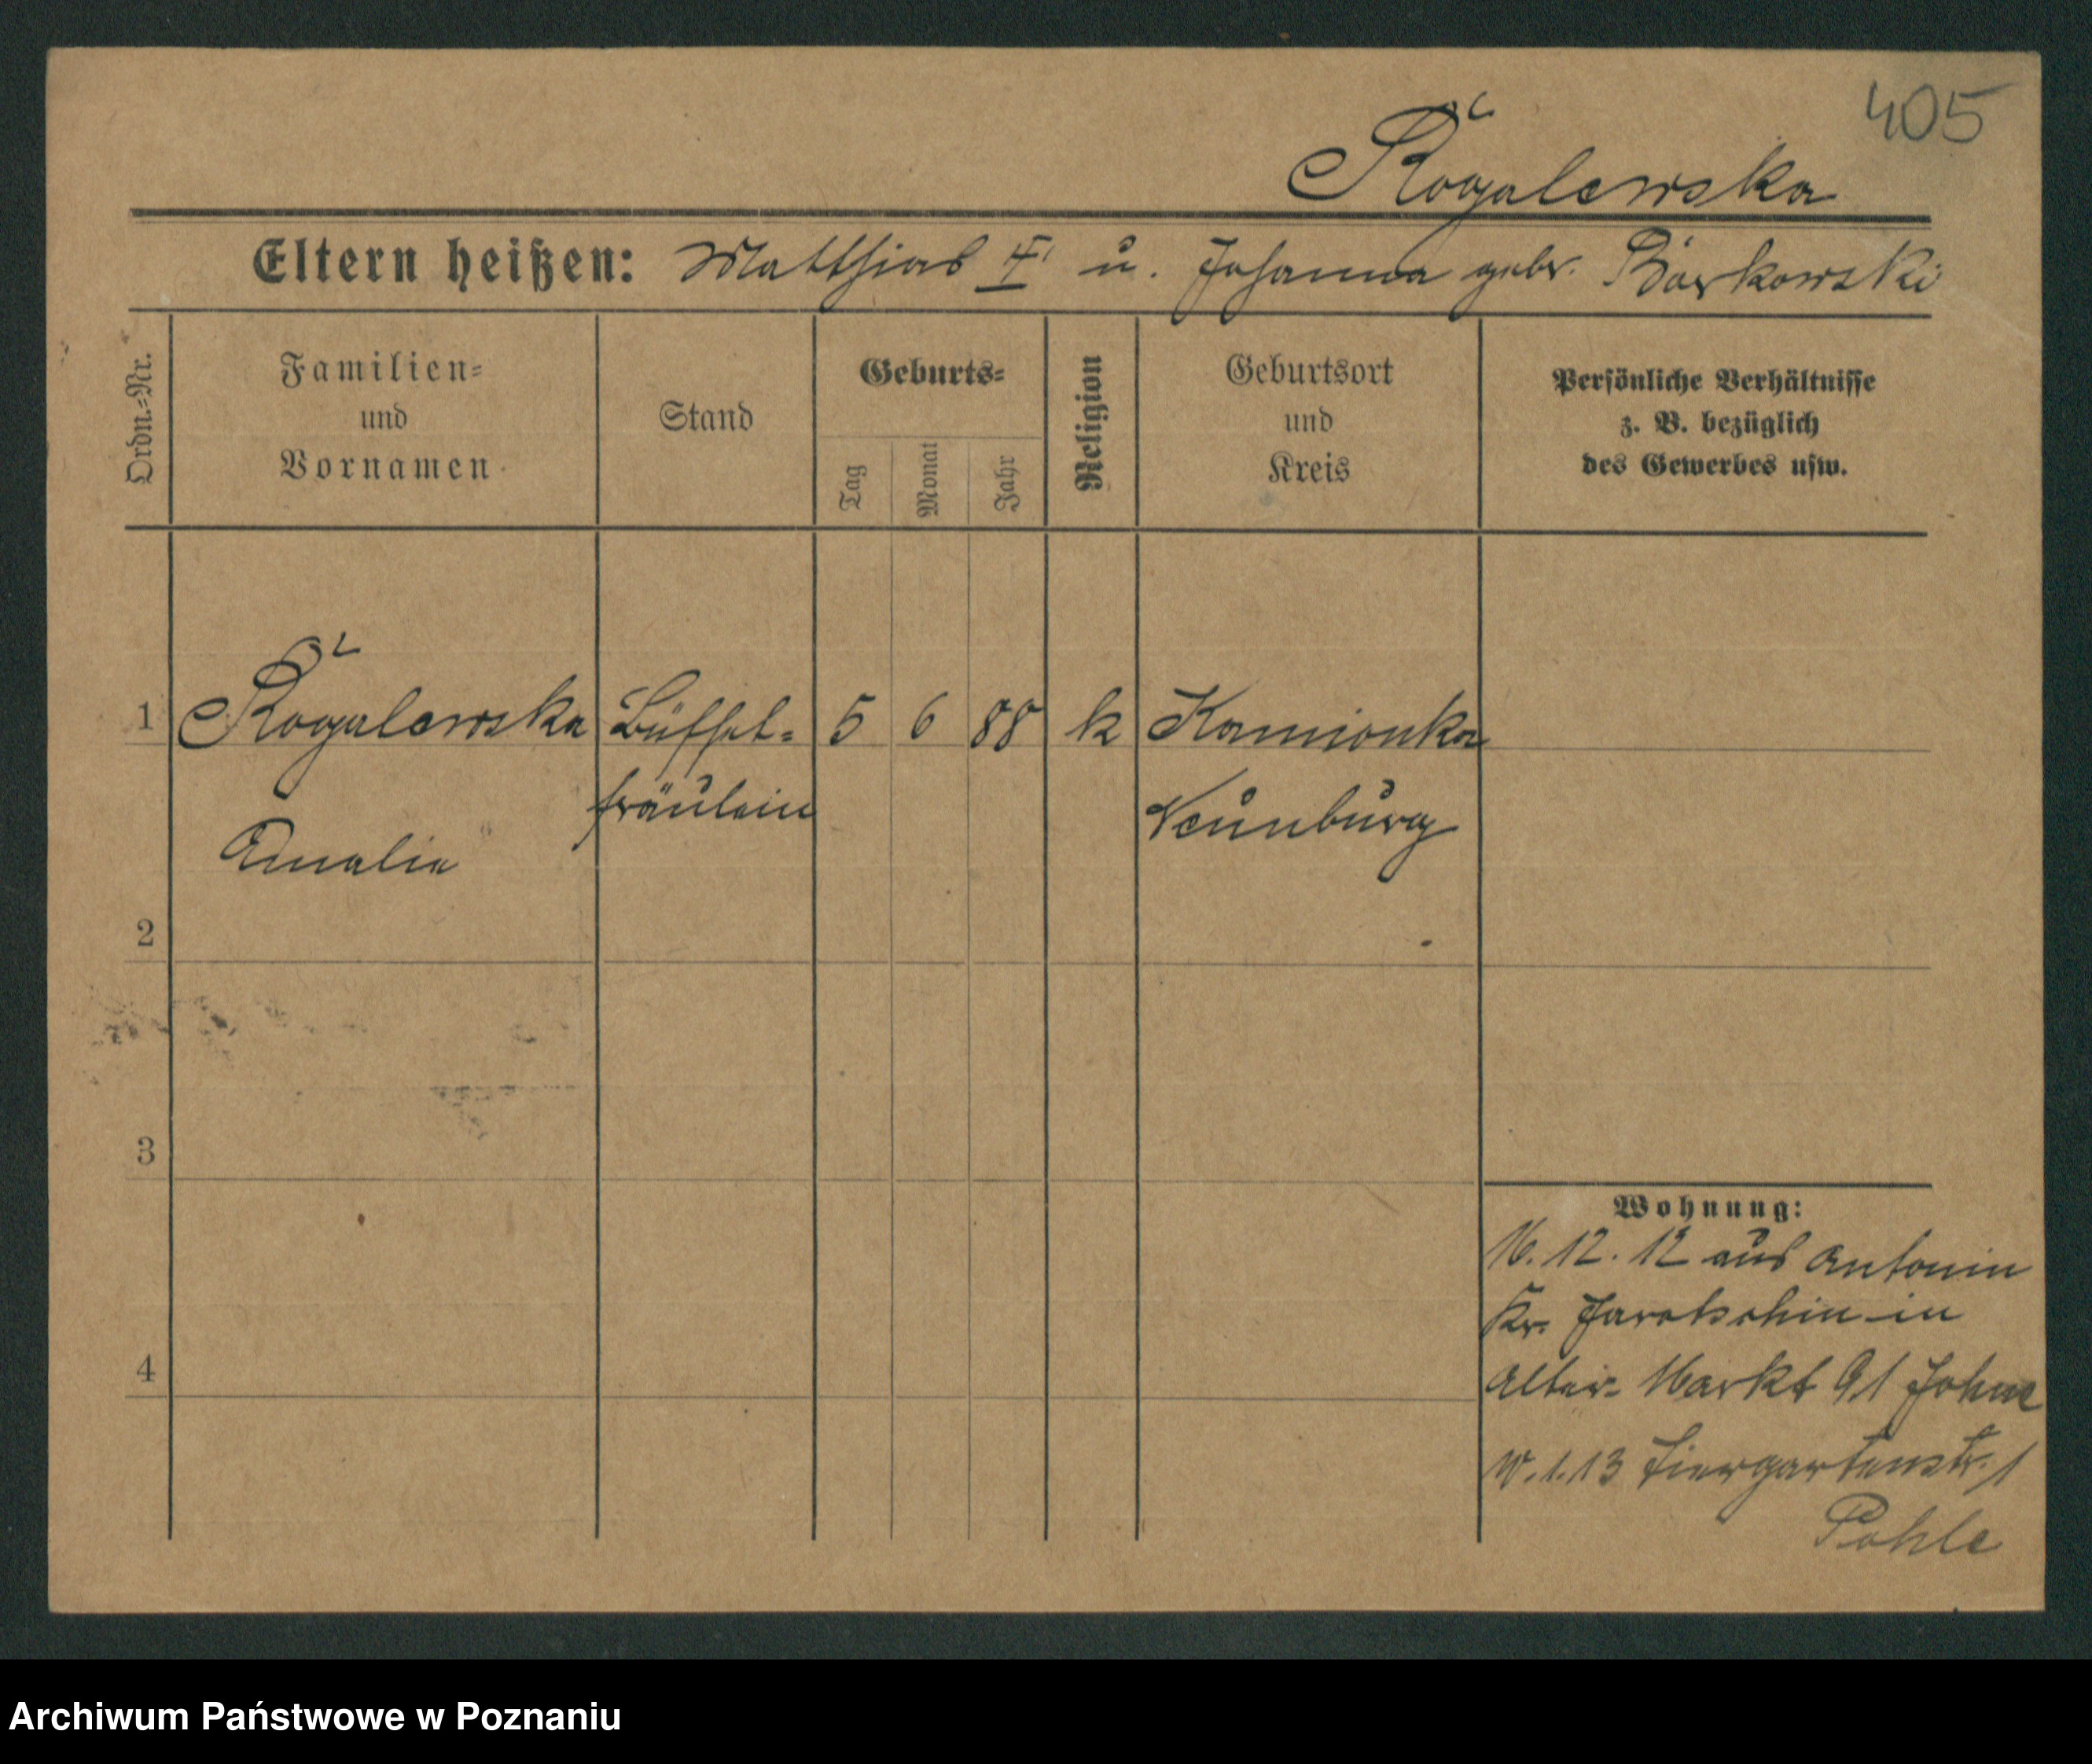 405
Rogalewska
Eltern heißen: Matthias † u. Johanna gebr. Borkowski
Ordn.-Nr.
Familien-
und
Vornamen
Stand
Geburts-
Tag
Monat
Jahr
Religion
Geburtsort
und
Kreis
Persönliche Verhältnisse
z. B. bezüglich
des Gewerbes usw.
1 Rogalewska Büffet- 5 6 88 k Kamionka
fräulein Neunburg
Amalie
2
3
4
Wohnung:
16.12.12 aus Antonin
Kr. Jarotschin in
Alter Markt 91 Johne
10.1.13 Tiergartenstr. 1
Pohle
Archiwum Państwowe w Poznaniu